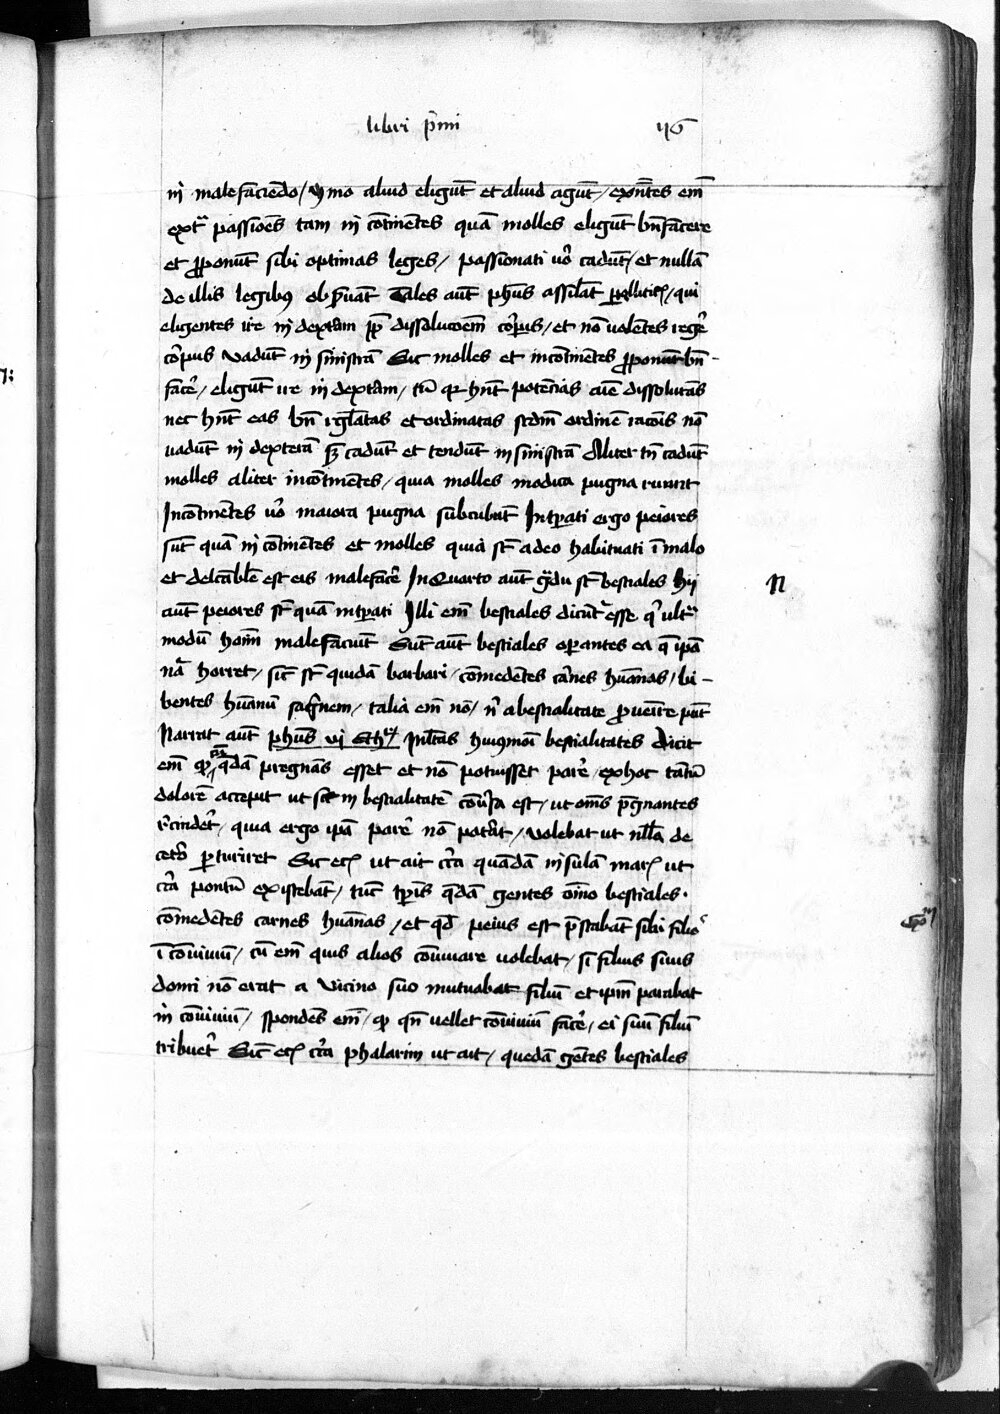 libri p̄mi 116
in malefaciendo / ymo aliud eligūt et aliud agūt / exn̄tes em̄
extᵃ passiōes tam in cōtinētes quā molles eligūt bn̄facere
et ꝓponūt sibi optimas leges / passionati v̊o cadūt / et nullā
de illis legibꝰ obſuāt Tales aūt ph̄us assil̄at / qui
eligentes ire in dextam ꝓp dissolucōem corꝑis / et nō uolētes regeֿ
corpus vadūt in sinistrā Sic molles et incōtinētes ꝓponūt bn̄-
faceֿ / eligūt ire in dextam / tn̄ qꝛ hn̄t potēcias aīe dissolutas
nec hn̄t eas bn̄ rgl̄atas et ordinatas scdm̄ ordinē racōis nō
uadūt in dexterā sꝫ cadūt et tendūt in sinistrā Aliter tn̄ cadūt
molles aliter incōtinētes / quia molles modica pugna ruunt
Incōtinētes v̊o maiora pugna subcūbūt Intꝑati ergo peiores
sūt quā in cōtinētes et molles quia st̄ adeo habituati ī malo
et delcābl̄e est eis malefaceֿ In Quarto aūt gᵃdu st̄ bestiales hij
aūt peiores st̄ quā intꝑati Illi em̄ bestiales dicūtᷣ esse qⁱ ultᵃ
modū hoīm malefaciūt Sūt aūt bestiales oꝑantes ea q̄ ipā
nāᵃ horret / sic̄ st̄ quidā barbari / cōmedētes carnes hūanas / bi-
bentes hūanū sāgnem / talia em̄ nō / nⁱ a bestialitate ꝓueīre pn̄t
Narrat aūt ph̄us vi Eth Ml̄tas huiꝰmōi bestialitates dicit
em̄ ꝙ q̄dā pregnās esset et nō potuisset pareֿ / ex hoc tātū
dolorē accepit ut sit in bestialitatē cōuſa est / ut om̄s p̄gnantes
 / quia ergo ipā pareֿ nō potāt / volebat ut nl̄la de
cetº ꝑturiret Sic eciā ut ait cīca quādā insulā maris ut
cīca pontū existebāt / tūc tꝑis q̄dā gentes oīno bestiales .
cōmedētes carnes hūanas / et qd̄ peius est p̄stabāt sibi filioˢ
ī cōuiuiū / cū em̄ quis alios cōuiuare uolebat / si filius suus
domi nō erat a vicino suo mutuabat filiū et ip̄m parabat
in cōuiuiū / spondēs em̄ / ꝙ qn̄ vellet cōuiuiū faceֿ / ei suū filiū
tribueֿt Sic eciā cīca phalarim ut ait / quedā gētes bestiales
N